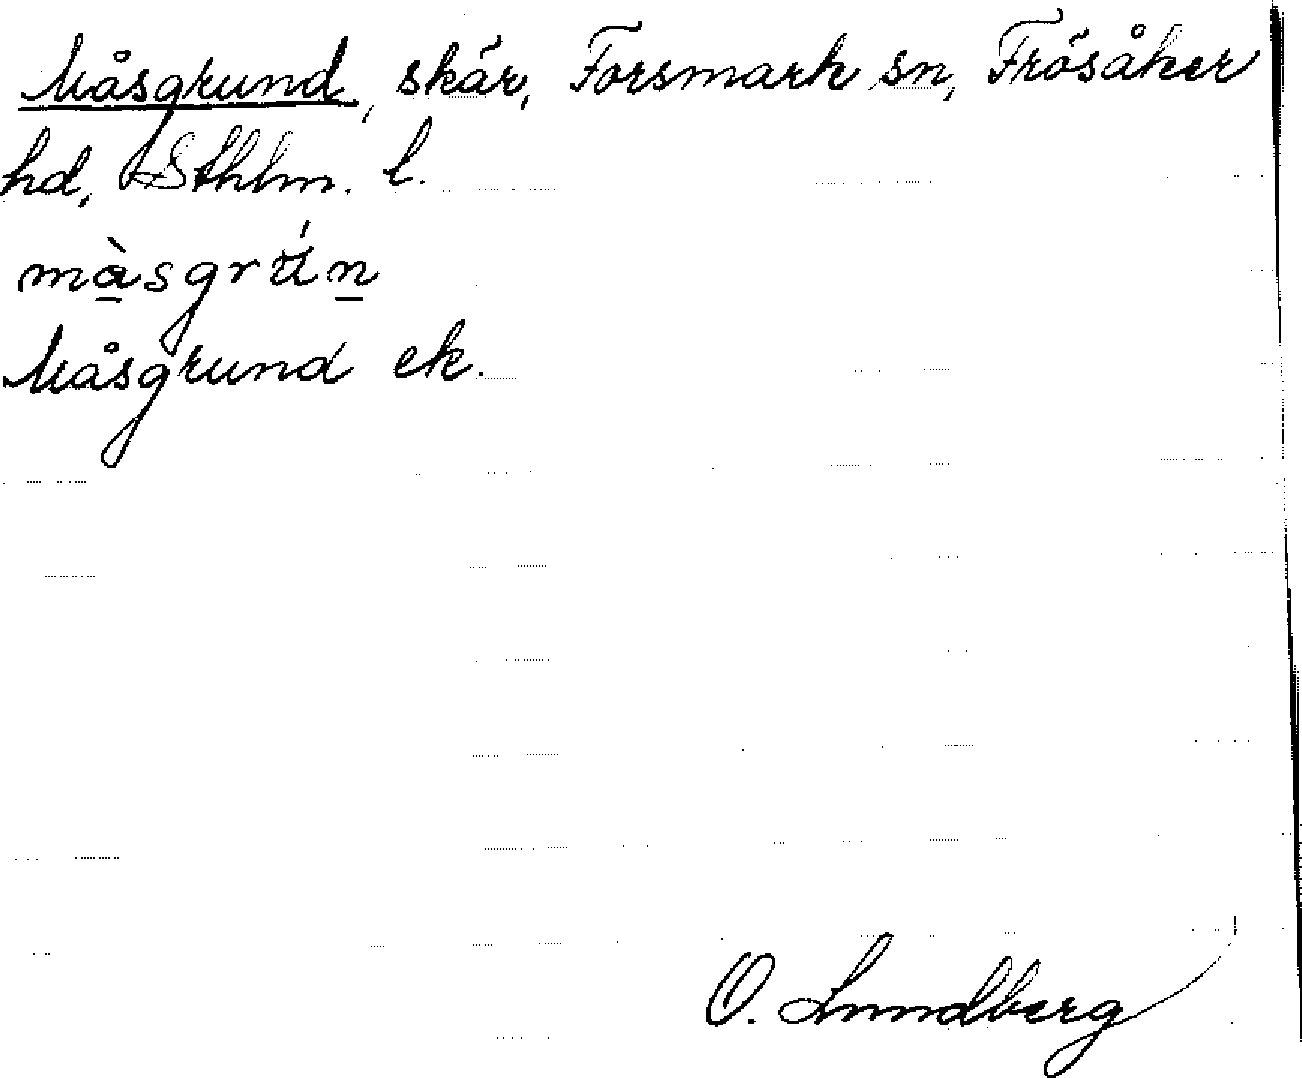 Måsgrund, skär, Forsmark sn, Frösåker
hd, Sthlm. l.
mà̱sgrǘṉ
Måsgrund ek.
O. Lundberg